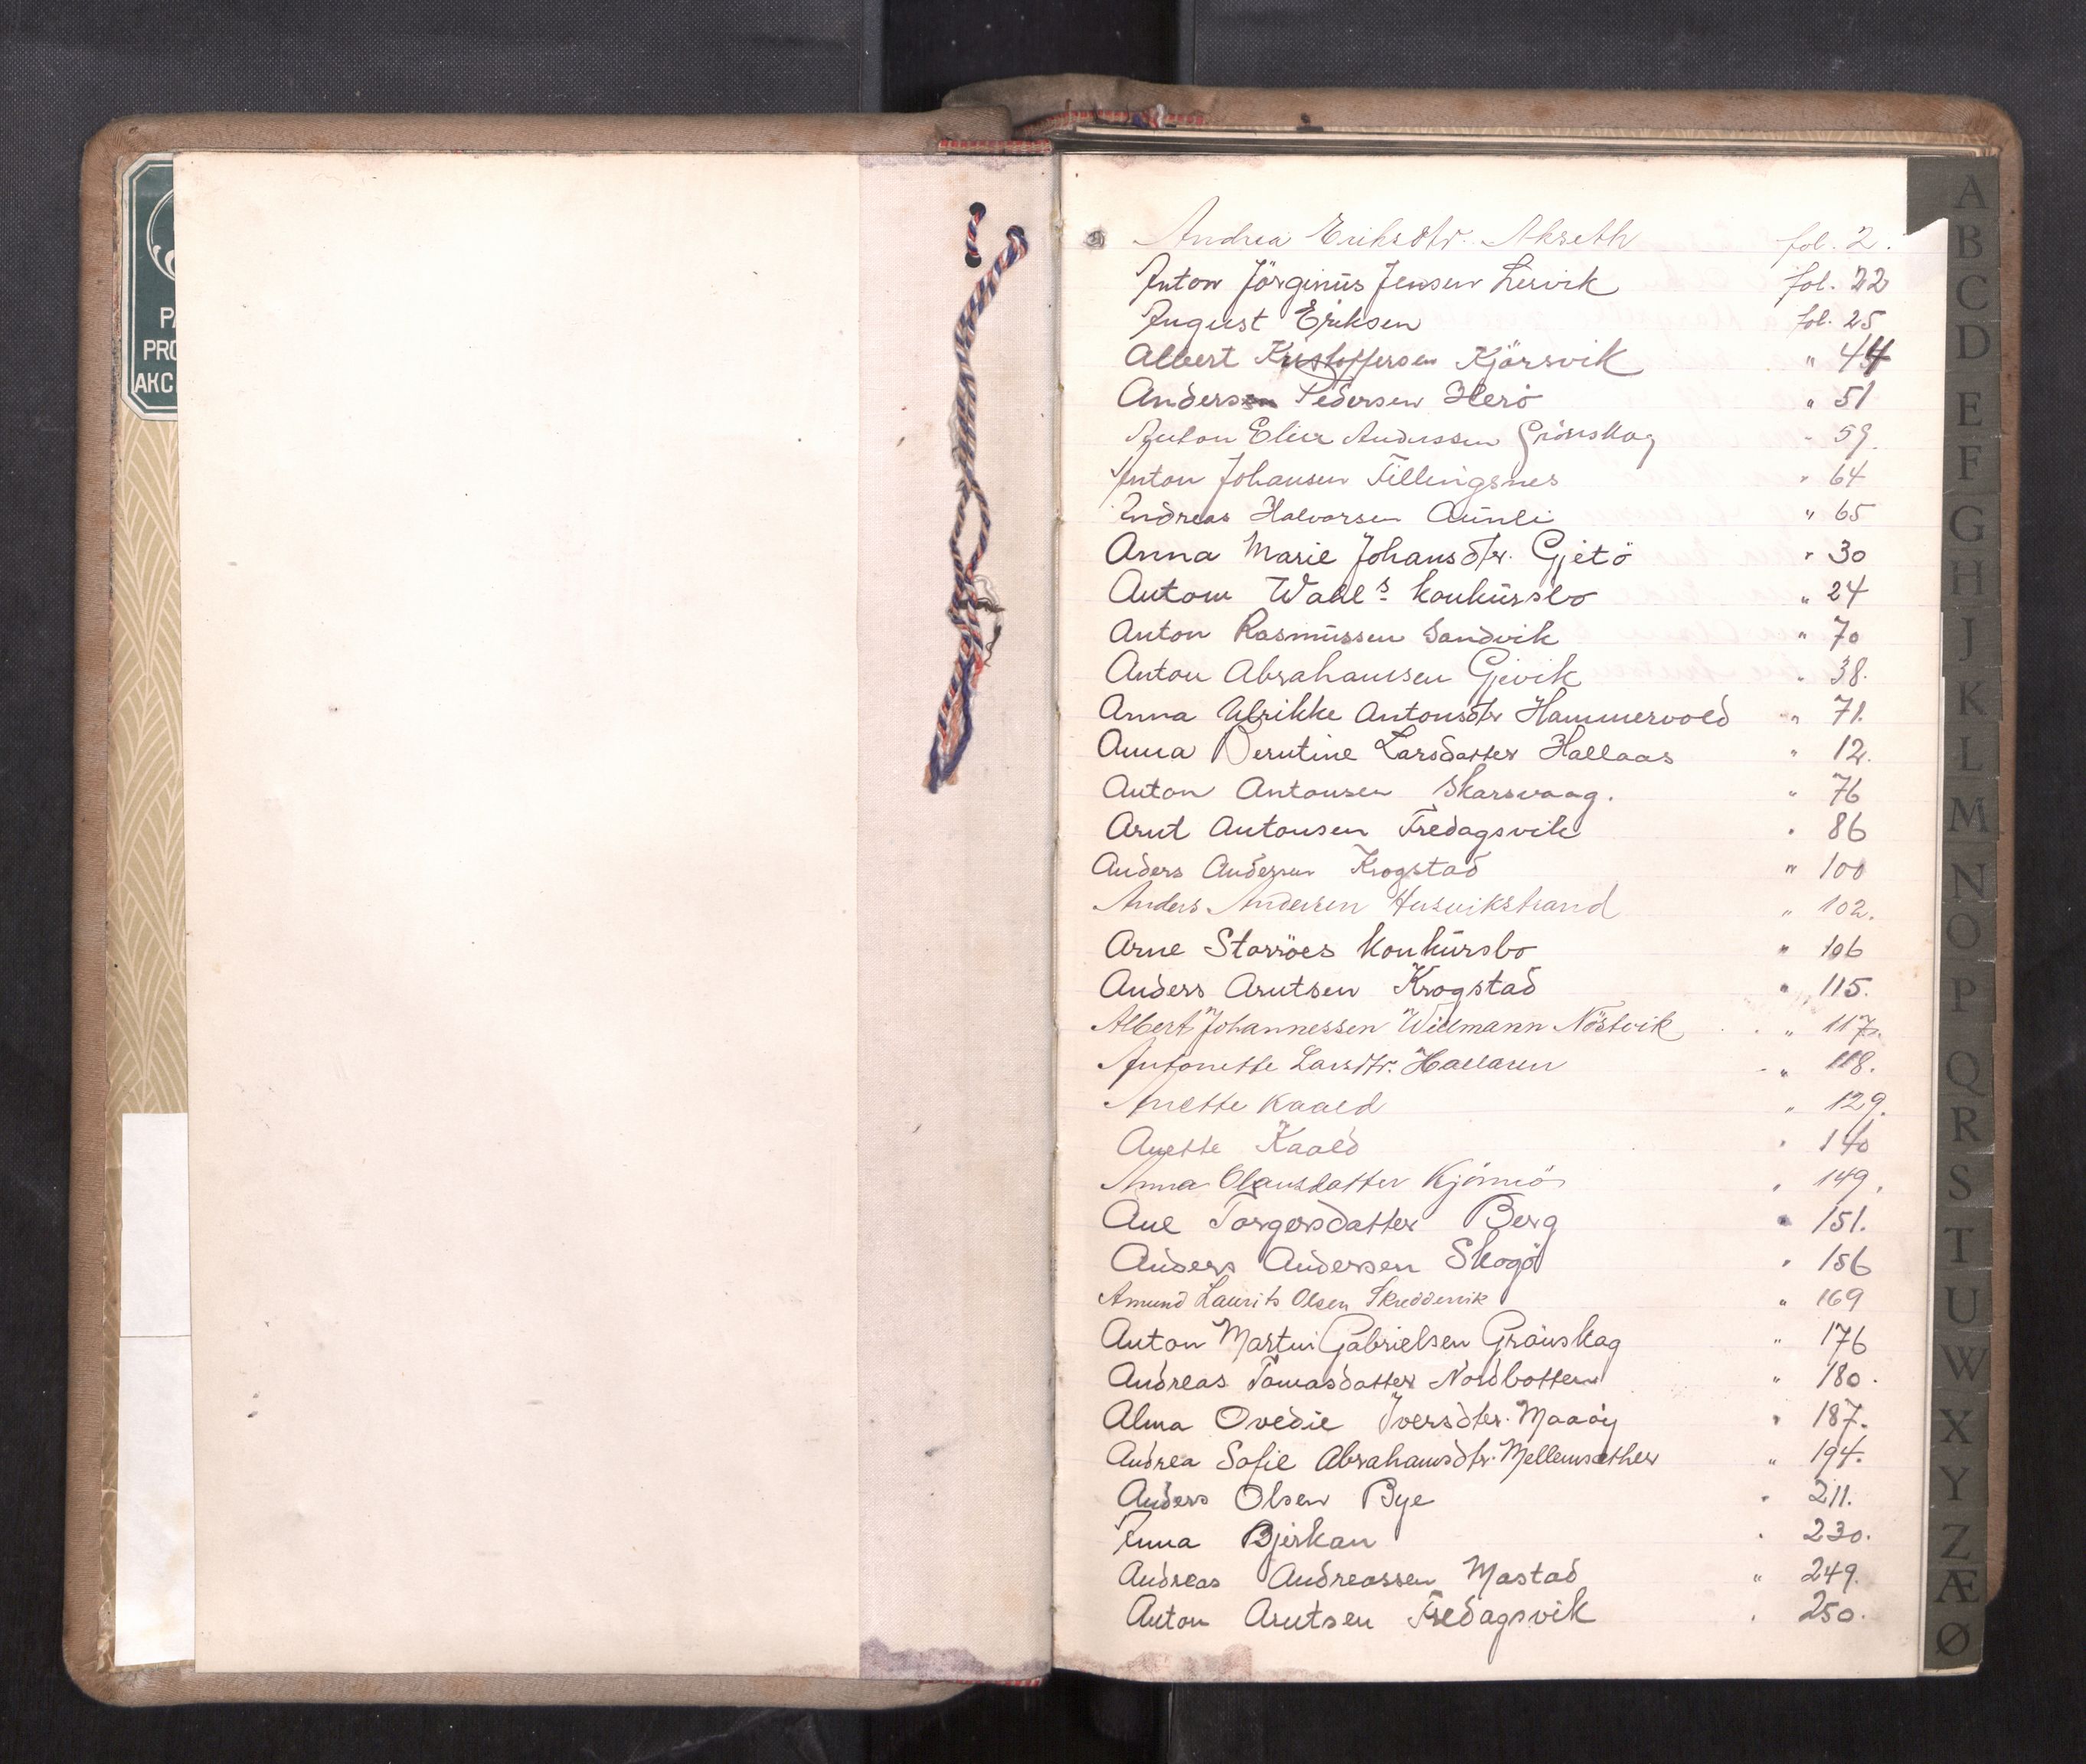 PA
PRO
AKC
Andrea Eriksdtr. Akseth fol. 2.
Anton Jörginus Jensen Lervik fol. 22
August Eriksen fol. 25
Albert Kristoffersen Kjörsvik " 44
Anders Pedersen Herö " 51
Anton Elier Anderssen Grönskag " 59.
Anton Johansen Fillingsnes " 64
Andreas Halvorsen Aunli " 65
Anna Marie Johansdtr. Gjetö " 30
Anton Wahls konkursbo " 24
Anton Rasmussen Sandvik " 70
Anton Abrahamsen Gjevik " 38.
Anna Ulrikke Antonsdtr Hammervold " 71.
Anna Berntine Larsdatter Hallaas " 12.
Anton Antonsen Skarsvaag. " 76
Arnt Antonsen Fredagsvik " 86
Anders Andersen Krogstad " 100
Anders Andersen Husvikstrand " 102.
Arne Storröes konkursbo " 106
Anders Arntsen Krogstad " 115.
Albert Johannessen Widmann Nöstvik " 117.
Antonette Larsdtr. Hallaren " 118.
Anette Kaald " 129.
Anette Kaald " 140
Anna Olausdatter Kjönnö " 149.
Ane Torgersdatter Berg " 151.
Anders Andersen Skogö " 156
Amund Laurits Olsen Skreddervik " 169
Anton Martin Gabrielsen Grönskag " 176
Andreas Tomasdatter Nordbotten " 180.
Alma Ovedie Iversdtr. Maaöy " 187.
Andrea Sofie Abrahamsdtr. Mellemsæther " 194.
Anders Olsen Bye " 211.
Anna Bjerkan " 230.
Andreas Andreassen Mastad " 249.
Anton Arntsen Fredagsvik " 250.
A
B
C
D
E
F
G
H
J
K
L
M
N
O
P
Q
R
S
T
U
W
X
Y
Z
Æ
Ø